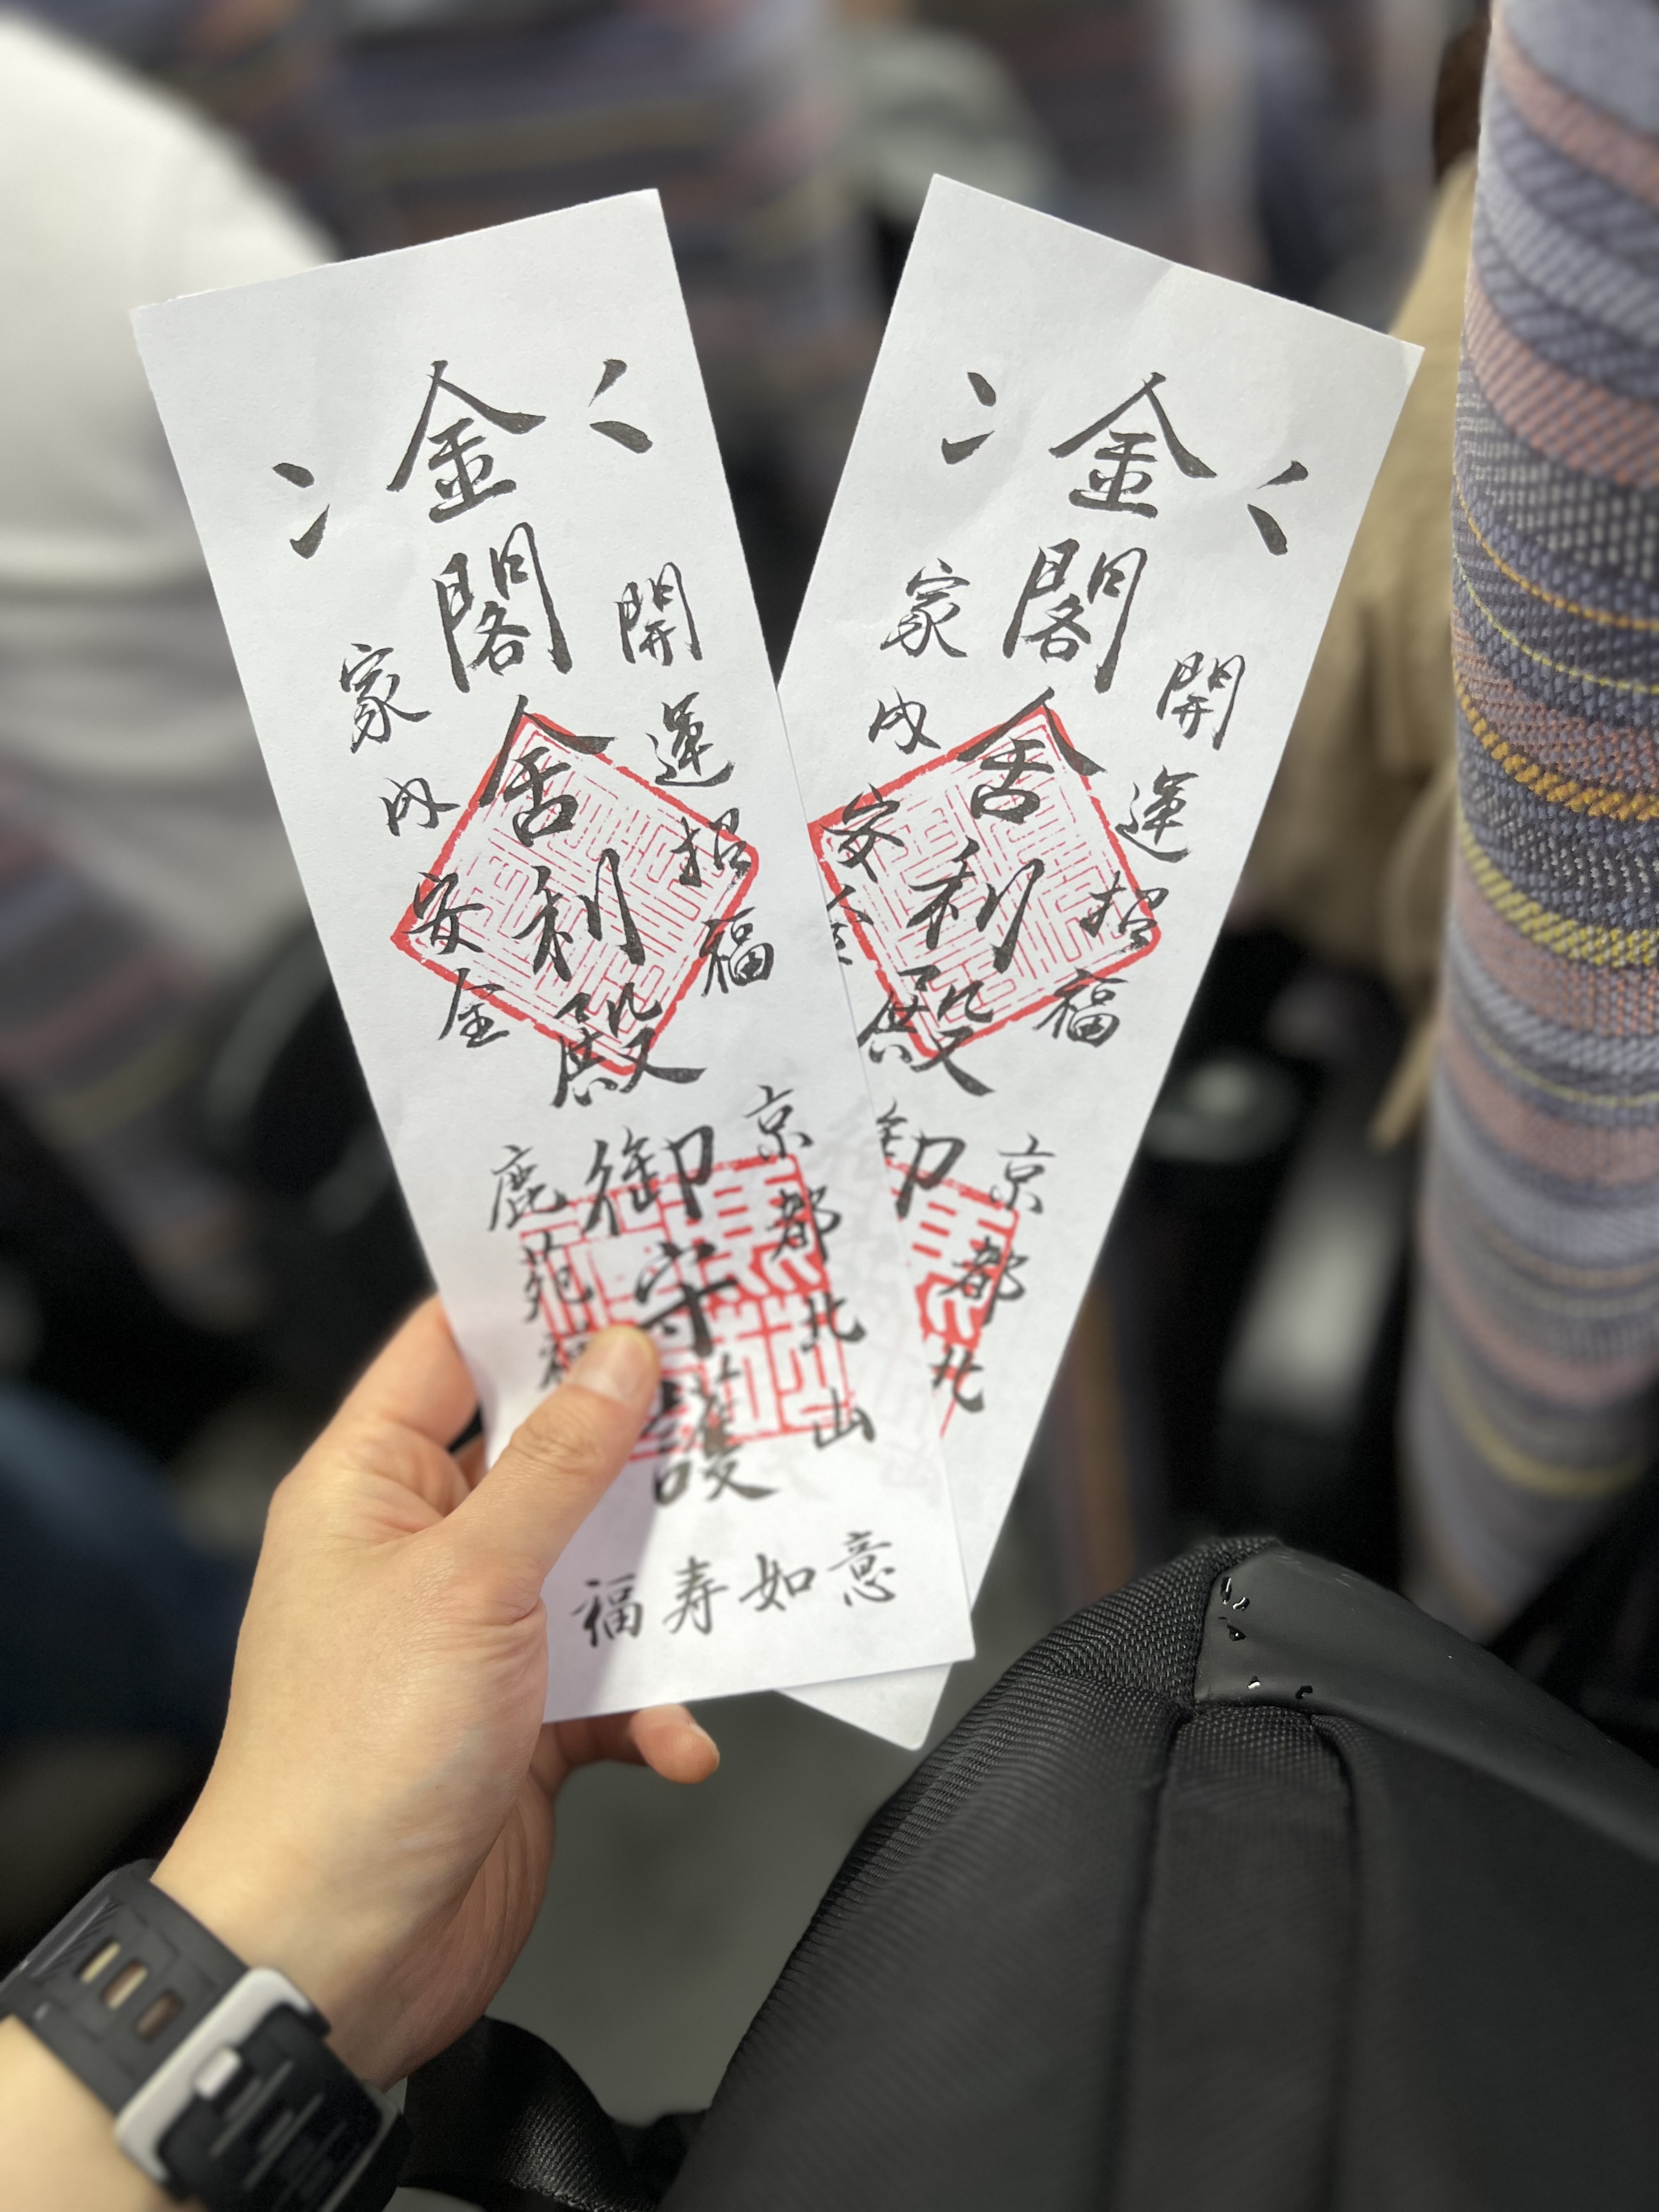 金閣舎利殿御守護
開運招福
家内安全
京都北山
鹿苑禅
福寿如意
金閣舎利殿御
開運招福
家内安全
京都北